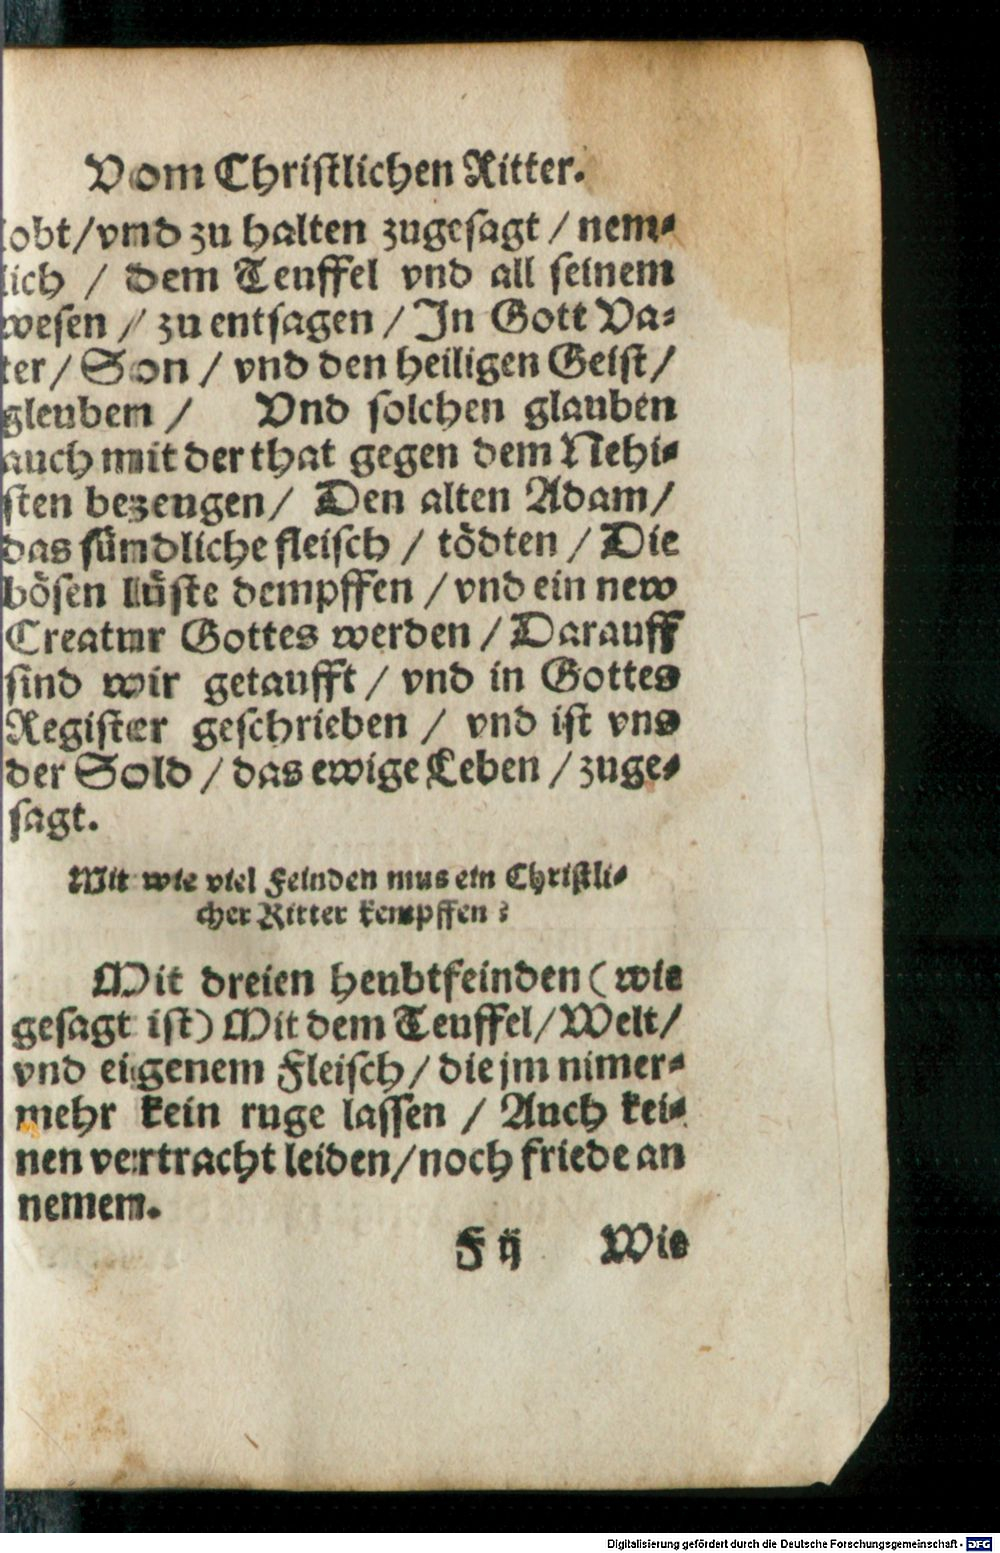 Vom Christlichen Ritter.
lobt/vnd zu halten zugesagt / nem-
lich / dem Teuffel vnd all seinem
wesen / zu entsagen / In Gott Va-
ter / Son / vnd den heiligen Geist /
gleuben / Vnd solchen glauben
auch mit der that gegen dem Nehi-
sten bezeugen / Den alten Adam /
das sündliche fleisch / tödten / Die
bösen lüste dempffen / vnd ein new
Creatur Gottes werden / Darauff
sind wir getaufft / vnd in Gottes
Register geschrieben / vnd ist vns
der Sold / das ewige Leben / zuge-
sagt.
Mit wie viel Feinden mus ein Christli-
cher Ritter kempffen?
Mit dreien heubtfeinden (wie
gesagt ist) Mit dem Teuffel / Welt /
vnd eigenem Fleisch / die jm nimer-
mehr kein ruge lassen / Auch kei-
nen vertracht leiden / noch friede an
nemen.
F ij Wie
Digitalisierung gefördert durch die Deutsche Forschungsgemeinschaft - DFG